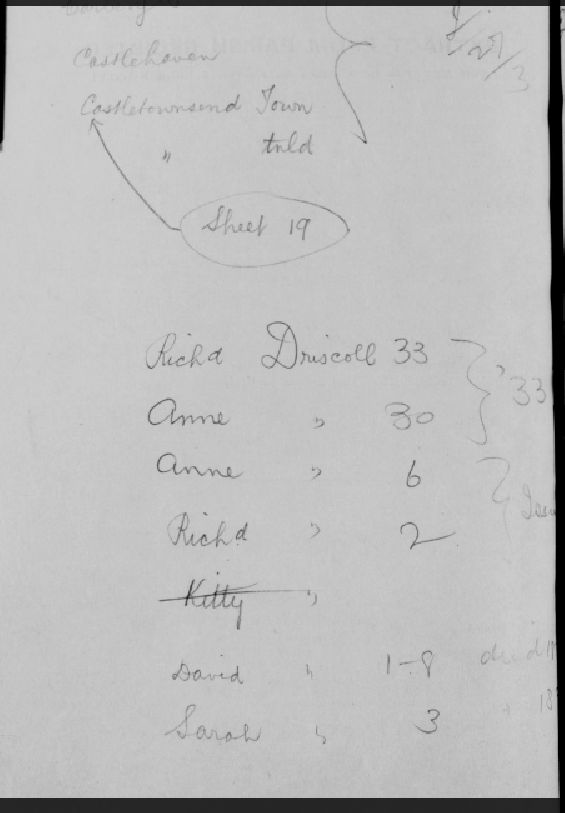 Castlehaven
Castletownsend Town
" tnld
Sheet 19
Richd Driscoll 33
Anne " 30
'33
Anne " 6
Richd " 2
Kitty "
David " 1-8
Sarah " 3